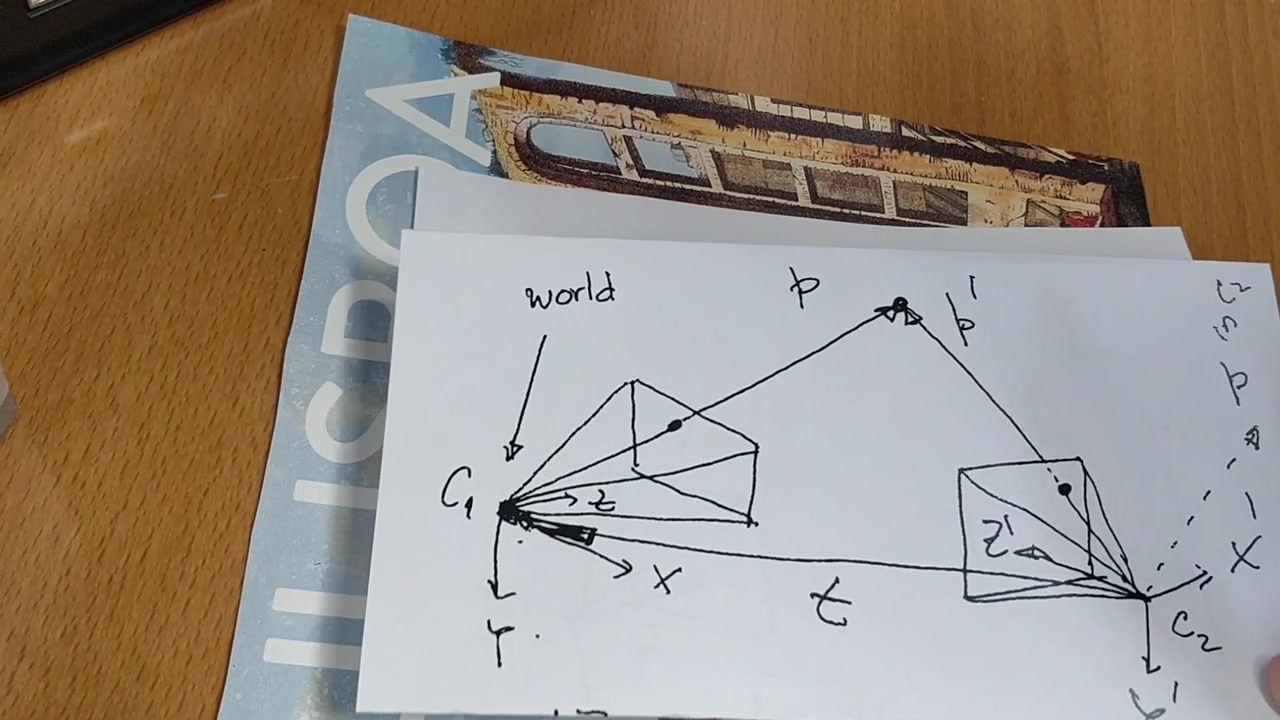 LISBOA
world
p
p'
C₁
z
X
Y
t
z'
X'
C₂
Y'
p